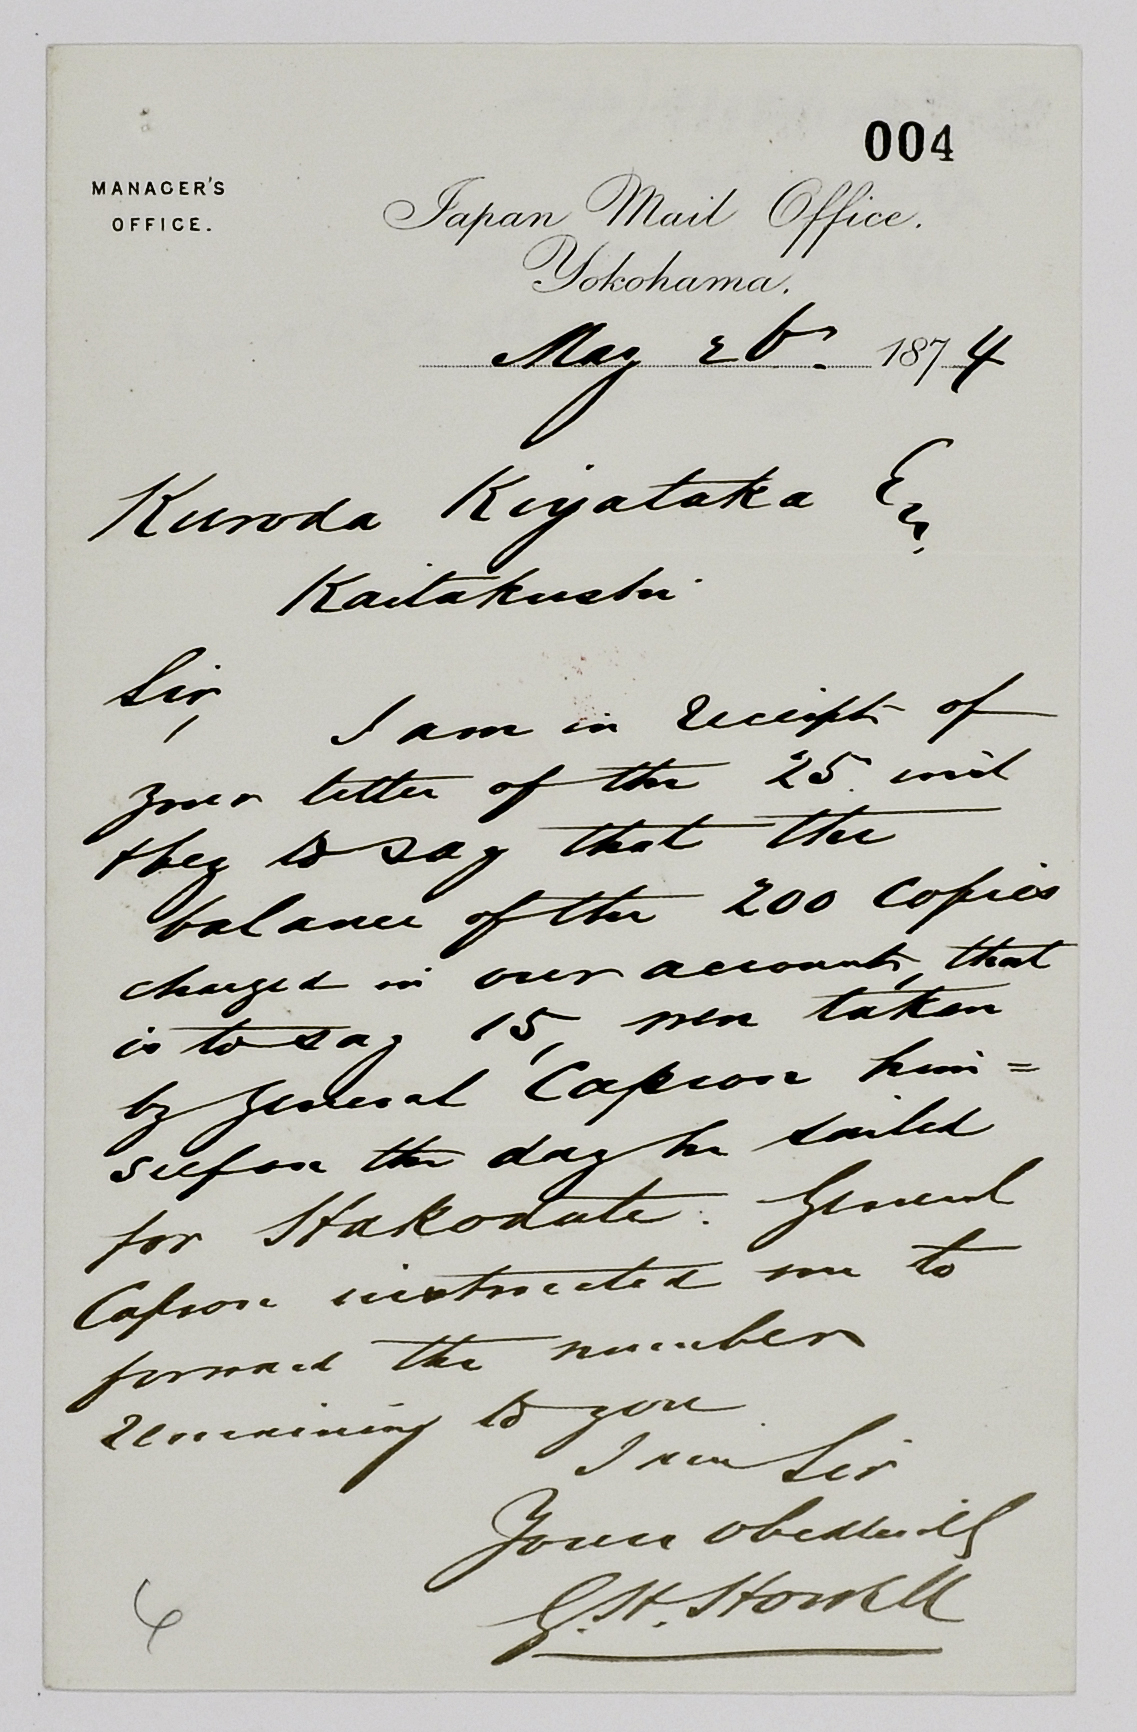 004
MANAGER'S
OFFICE.
Japan Mail Office.
Yokohama.
May 26. 1874
Kuroda Kiyataka Esq.
Kaitakushi
Sir,
I am in receipt of
your letter of the 25. inst
& beg to say that the
balance of the 200 copies
charged in our account, that
is to say 15, were taken
by General Capron him=
self on the day he sailed
for Hakodate. General
Capron instructed me to
forward the number
remaining to you
I am Sir
Yours obediently
G. H. Howell
6